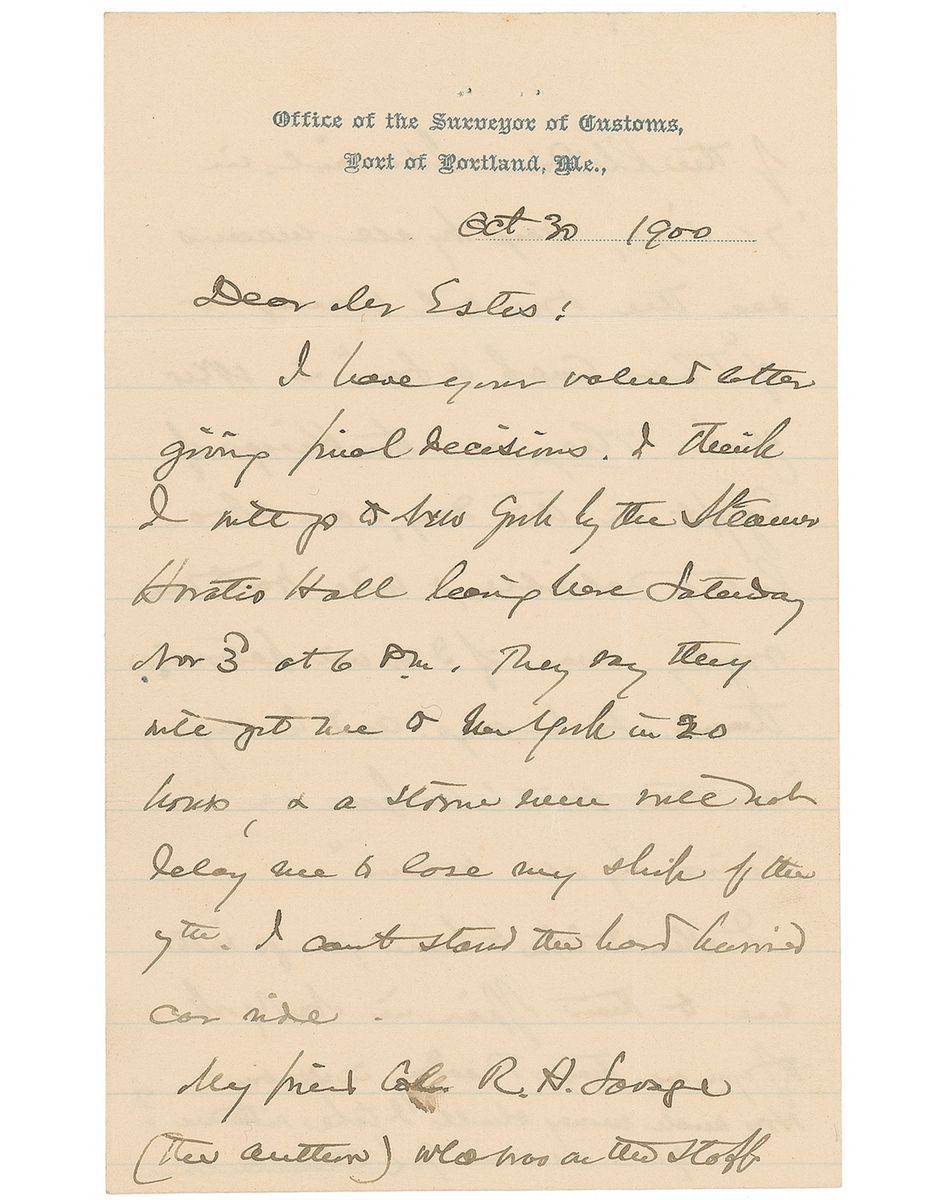 Office of the Surveyor of Customs,
Port of Portland, Me.,
Oct 30 1900
Dear Mr Estes:
I have your valued letter
giving final decisions. I think
I will go to New York by the Steamer
Horatio Hall leaving here Saturday
Nov 3 at 6 P.m. They say they
will get me to New York in 20
hours, & a storm even will not
delay me to lose my ship of the
7th. I can't stand the hard hurried
car ride.
My friend Col. R. H. Savage
(the author) who was on the staff